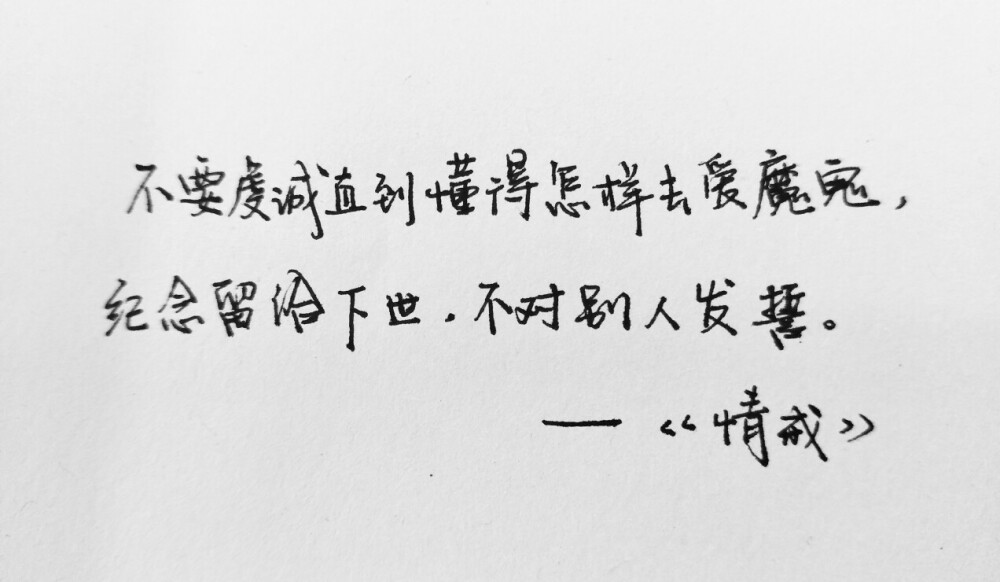 不要虔诚直到懂得怎样去爱魔鬼，
纪念留给下世，不对别人发誓。
——《情戒》